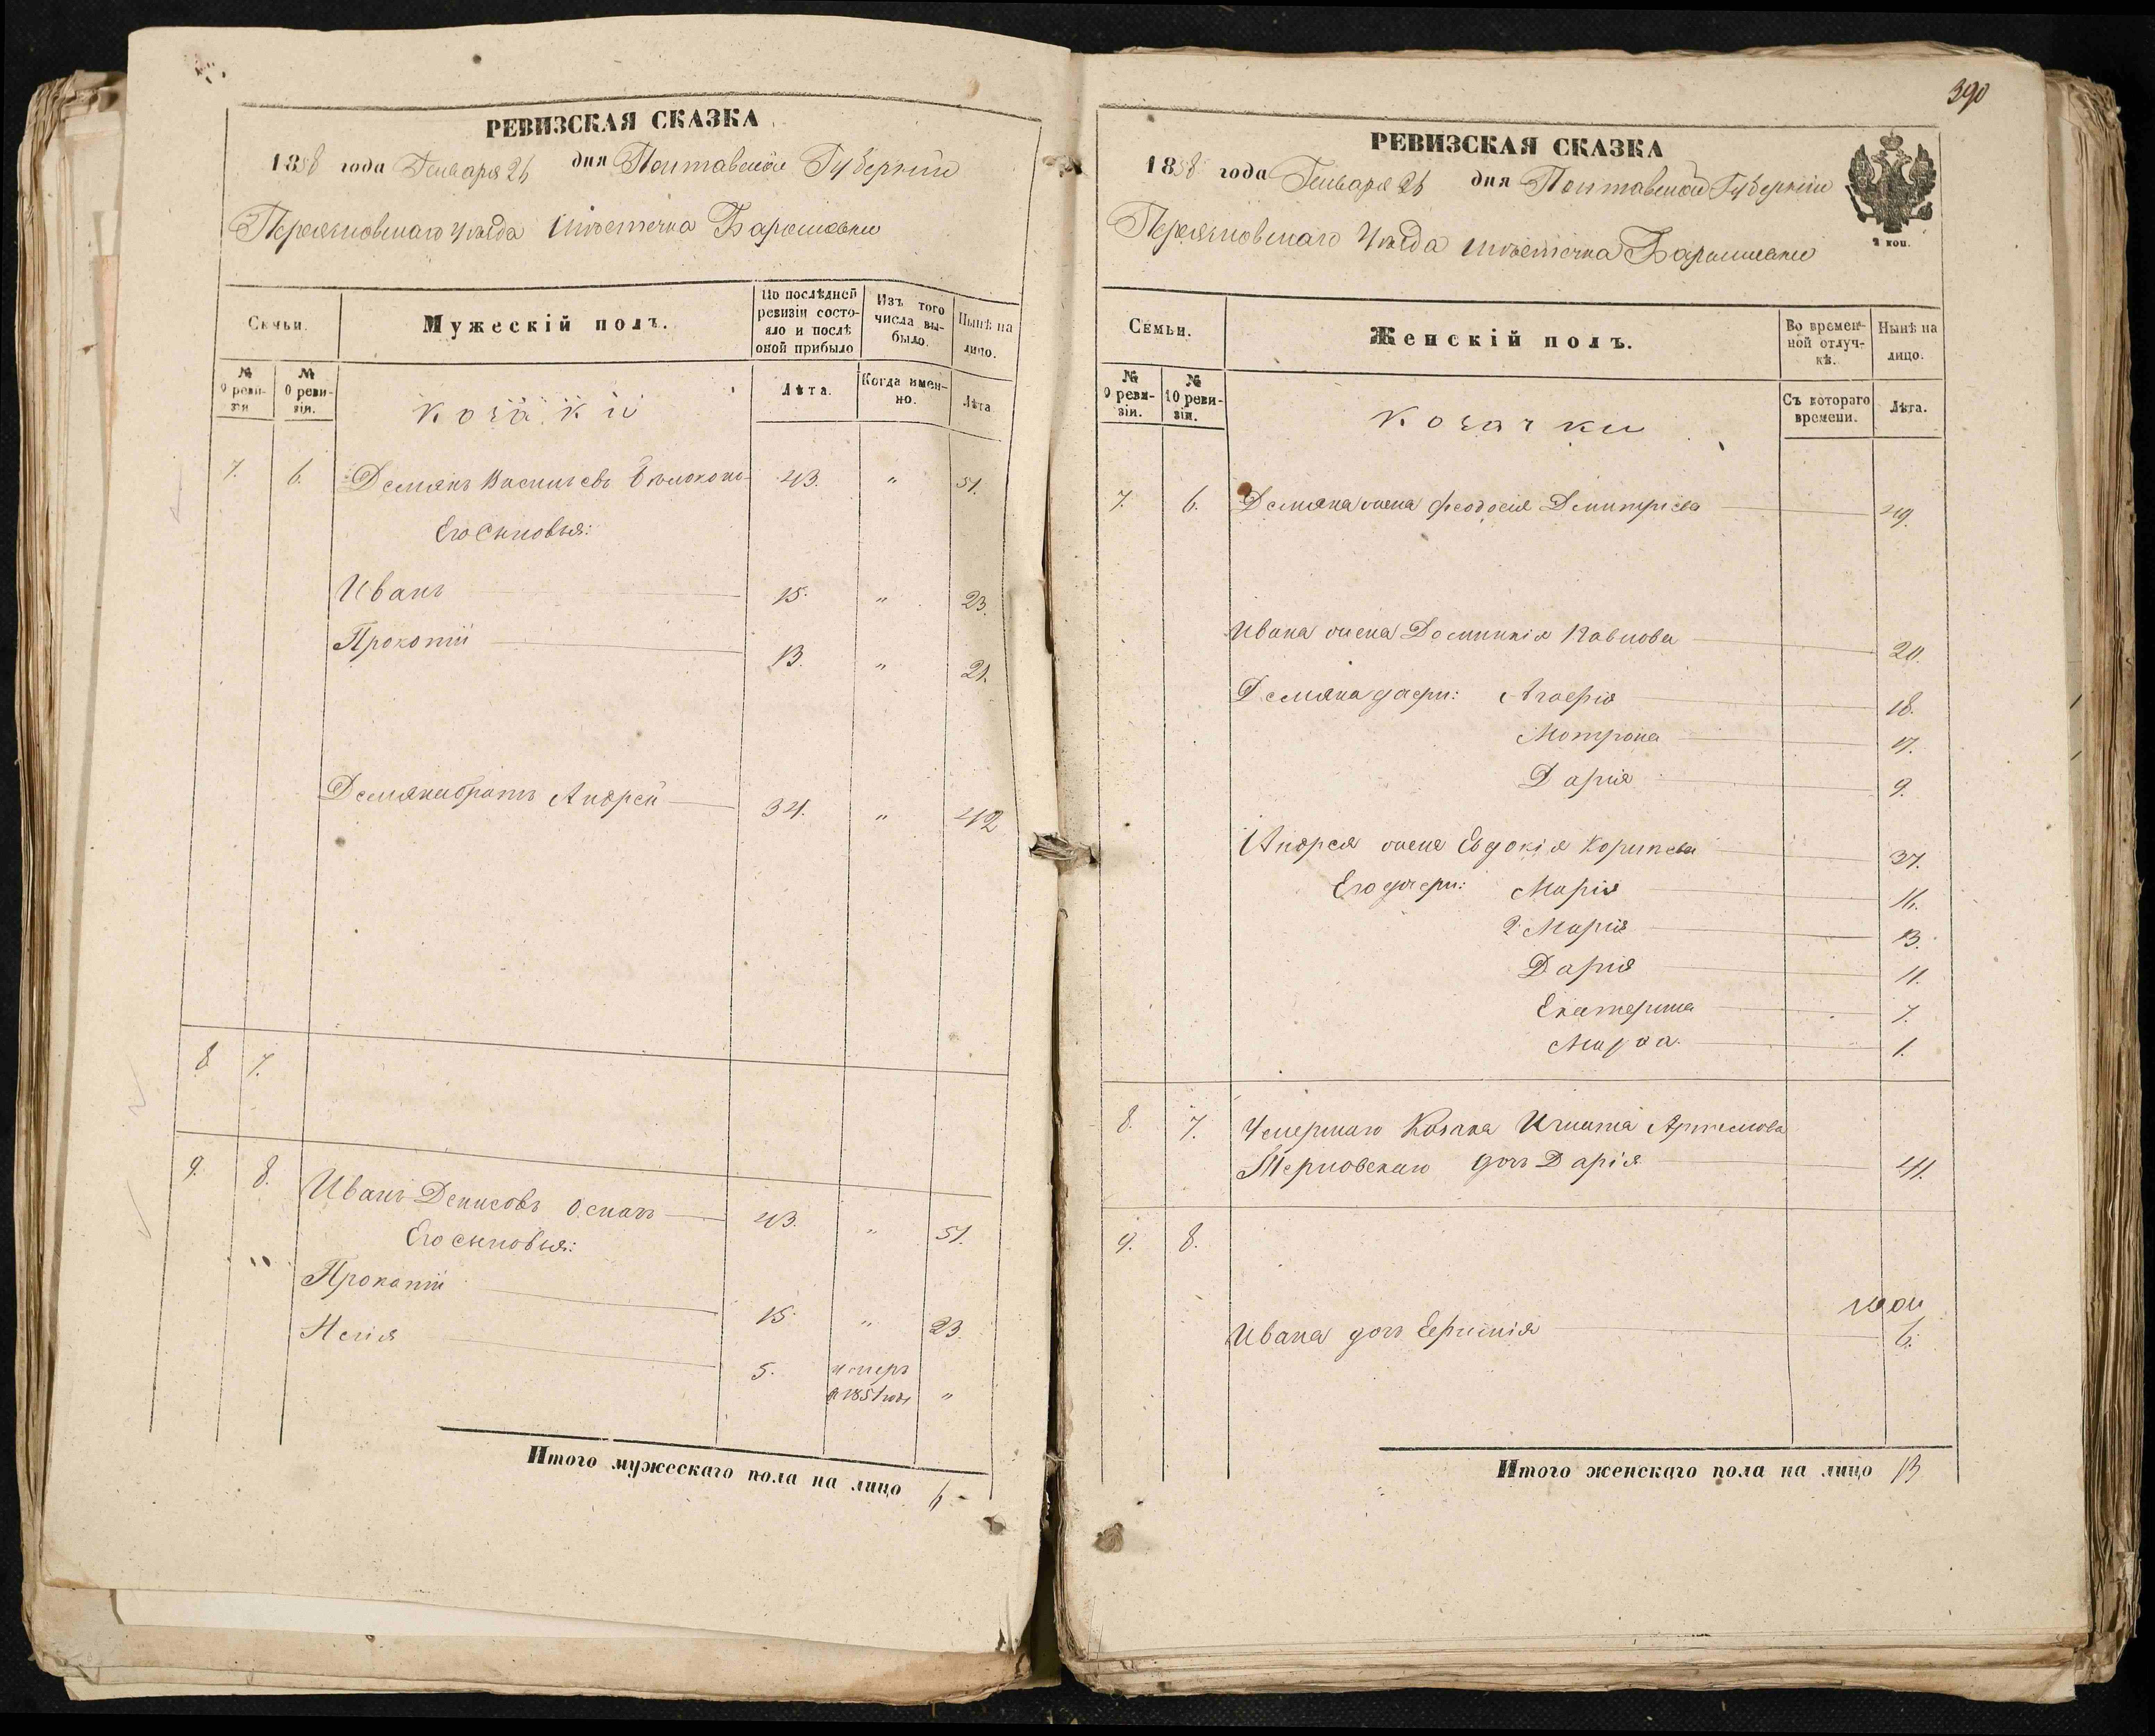 РЕВИЗСКАЯ СКАЗКА
1858 года Генваря 26 дня Полтавской Губернии
Переяславского Уѣзда мѣстечка Барышевки
Семьи.
Мужескій полъ.
По послѣдней ревизіи состояло и послѣ оной прибыло
Изъ того числа выбыло.
Нынѣ на лицо.
№ 9 ревизіи
№ 0 ревизіи.
Козаки
Лѣта.
Когда именно.
Лѣта
7. 6. Демянъ Васильевъ 43. " 51.
Его Сыновья:
Иванъ 15. " 23.
Прокопій 13. " 21.
Демяна братъ Андрей 34. " 42
8 7.
9. 8. Иванъ Денисовъ 43. " 51.
Его сыновья:
Прокопій 15. " 23
5. умеръ
в 1851 годѣ "
Итого мужескаго пола на лицо 6
390
РЕВИЗСКАЯ СКАЗКА
1858 года Генваря 26 дня Полтавской Губерніи
Переяславского Уѣзда мѣстечка Барышевки
2 коп.
Семьи.
Женскій полъ.
Во временной отлучкѣ.
Нынѣ на лицо.
№ 9 ревизіи.
№ 10 ревизіи.
Козачки
Съ котораго времени.
Лѣта.
7. 6. Демяна жена Феодосія Дмитріева 49.
Ивана жена Домникія Павлова 20.
Демяна дочери: 18.
Мотрона 17.
Дарія 9.
Андрея жена Евдокія Корнѣева 37.
Его дочери: Марія 16.
2. Марія 13.
Дарія 11.
Екатерина 7.
Марѳа. 1.
8. 7. Умершаго Козака Игната Артемова
Терновскаго дочь Дарія 41.
9. 8.
Ивана дочь 6.
Итого женскаго пола на лицо 13